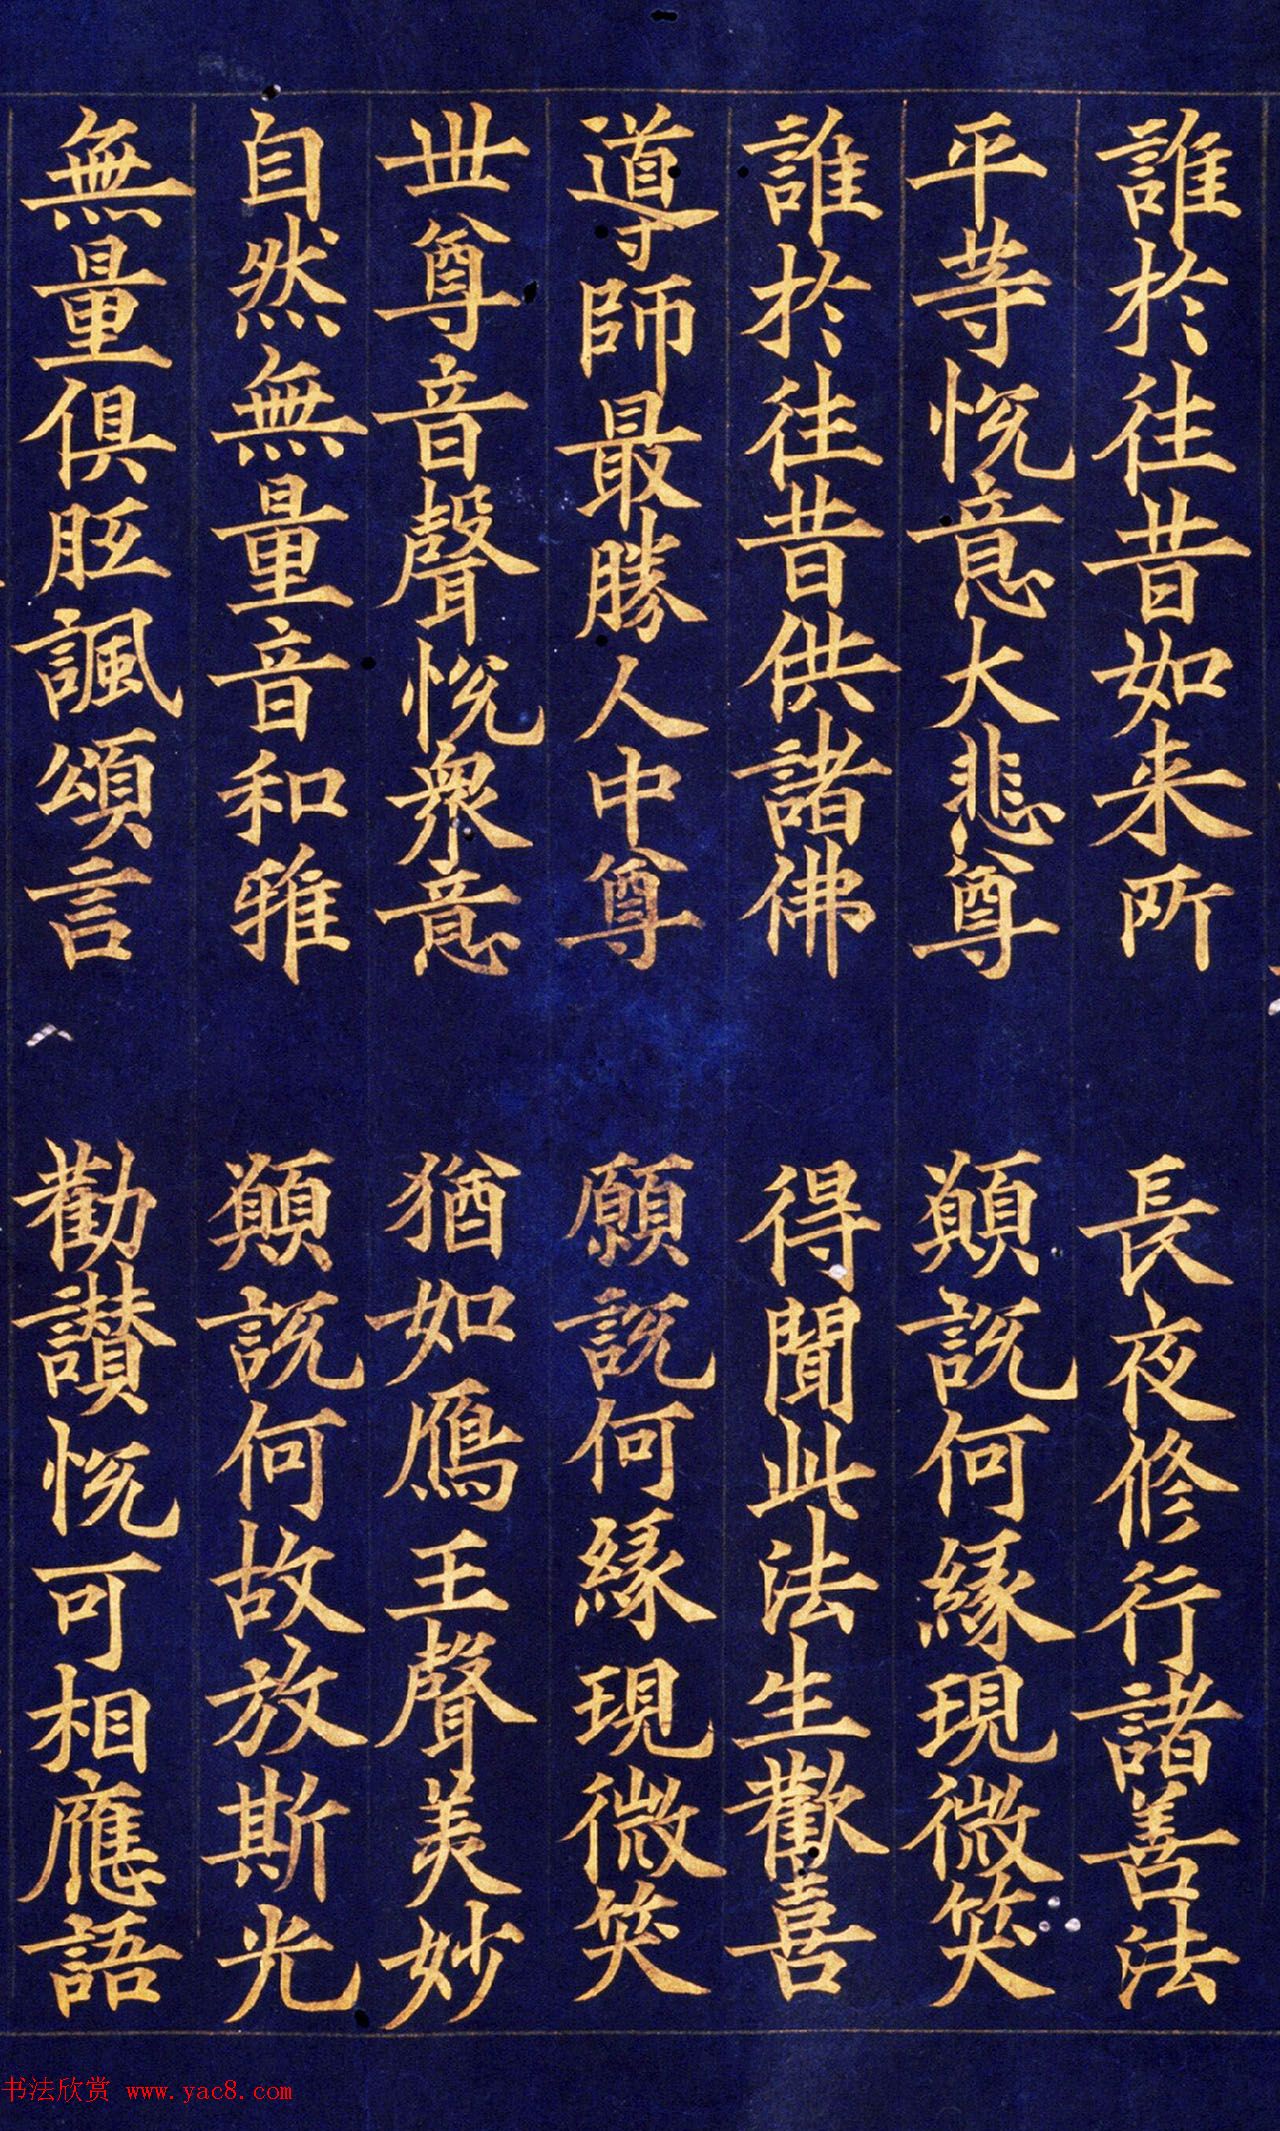 誰於往昔如来所　長夜修行諸善法
平等悅意大悲尊　願說何緣現微笑
誰於往昔供諸佛　得聞此法生歡喜
導師最勝人中尊　願說何緣現微笑
世尊音聲悅衆意　猶如鴈王聲美妙
自然無量音和雅　願說何故放斯光
無量俱胝諷頌言　勸讃悅可相應語
书法欣赏 www.yac8.com